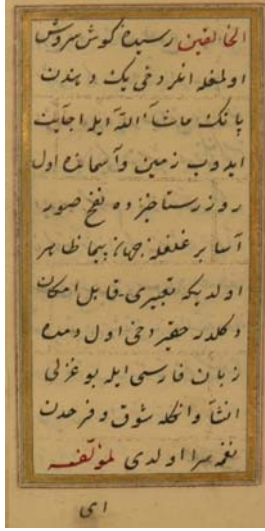 الخالقین رسیدۀ گوش سروش
اولمغله انلر دخی یك و بندن
بانك ماشآء اللّه ایله اجابت
ایدوب زمین وآسمانده اول
روز رستاخیزده نفخ صور
آسا بر غلغلۀ جهان پیما ظاهر
اولدیكه تعبیری قابل امكان
دكلدر حقیر دخی اول دمده
زبان فارسی ایله بو غزلی
انشآ وانكله شوق و فرحدن
نغمه سرا اولدی لمؤلفه
ای